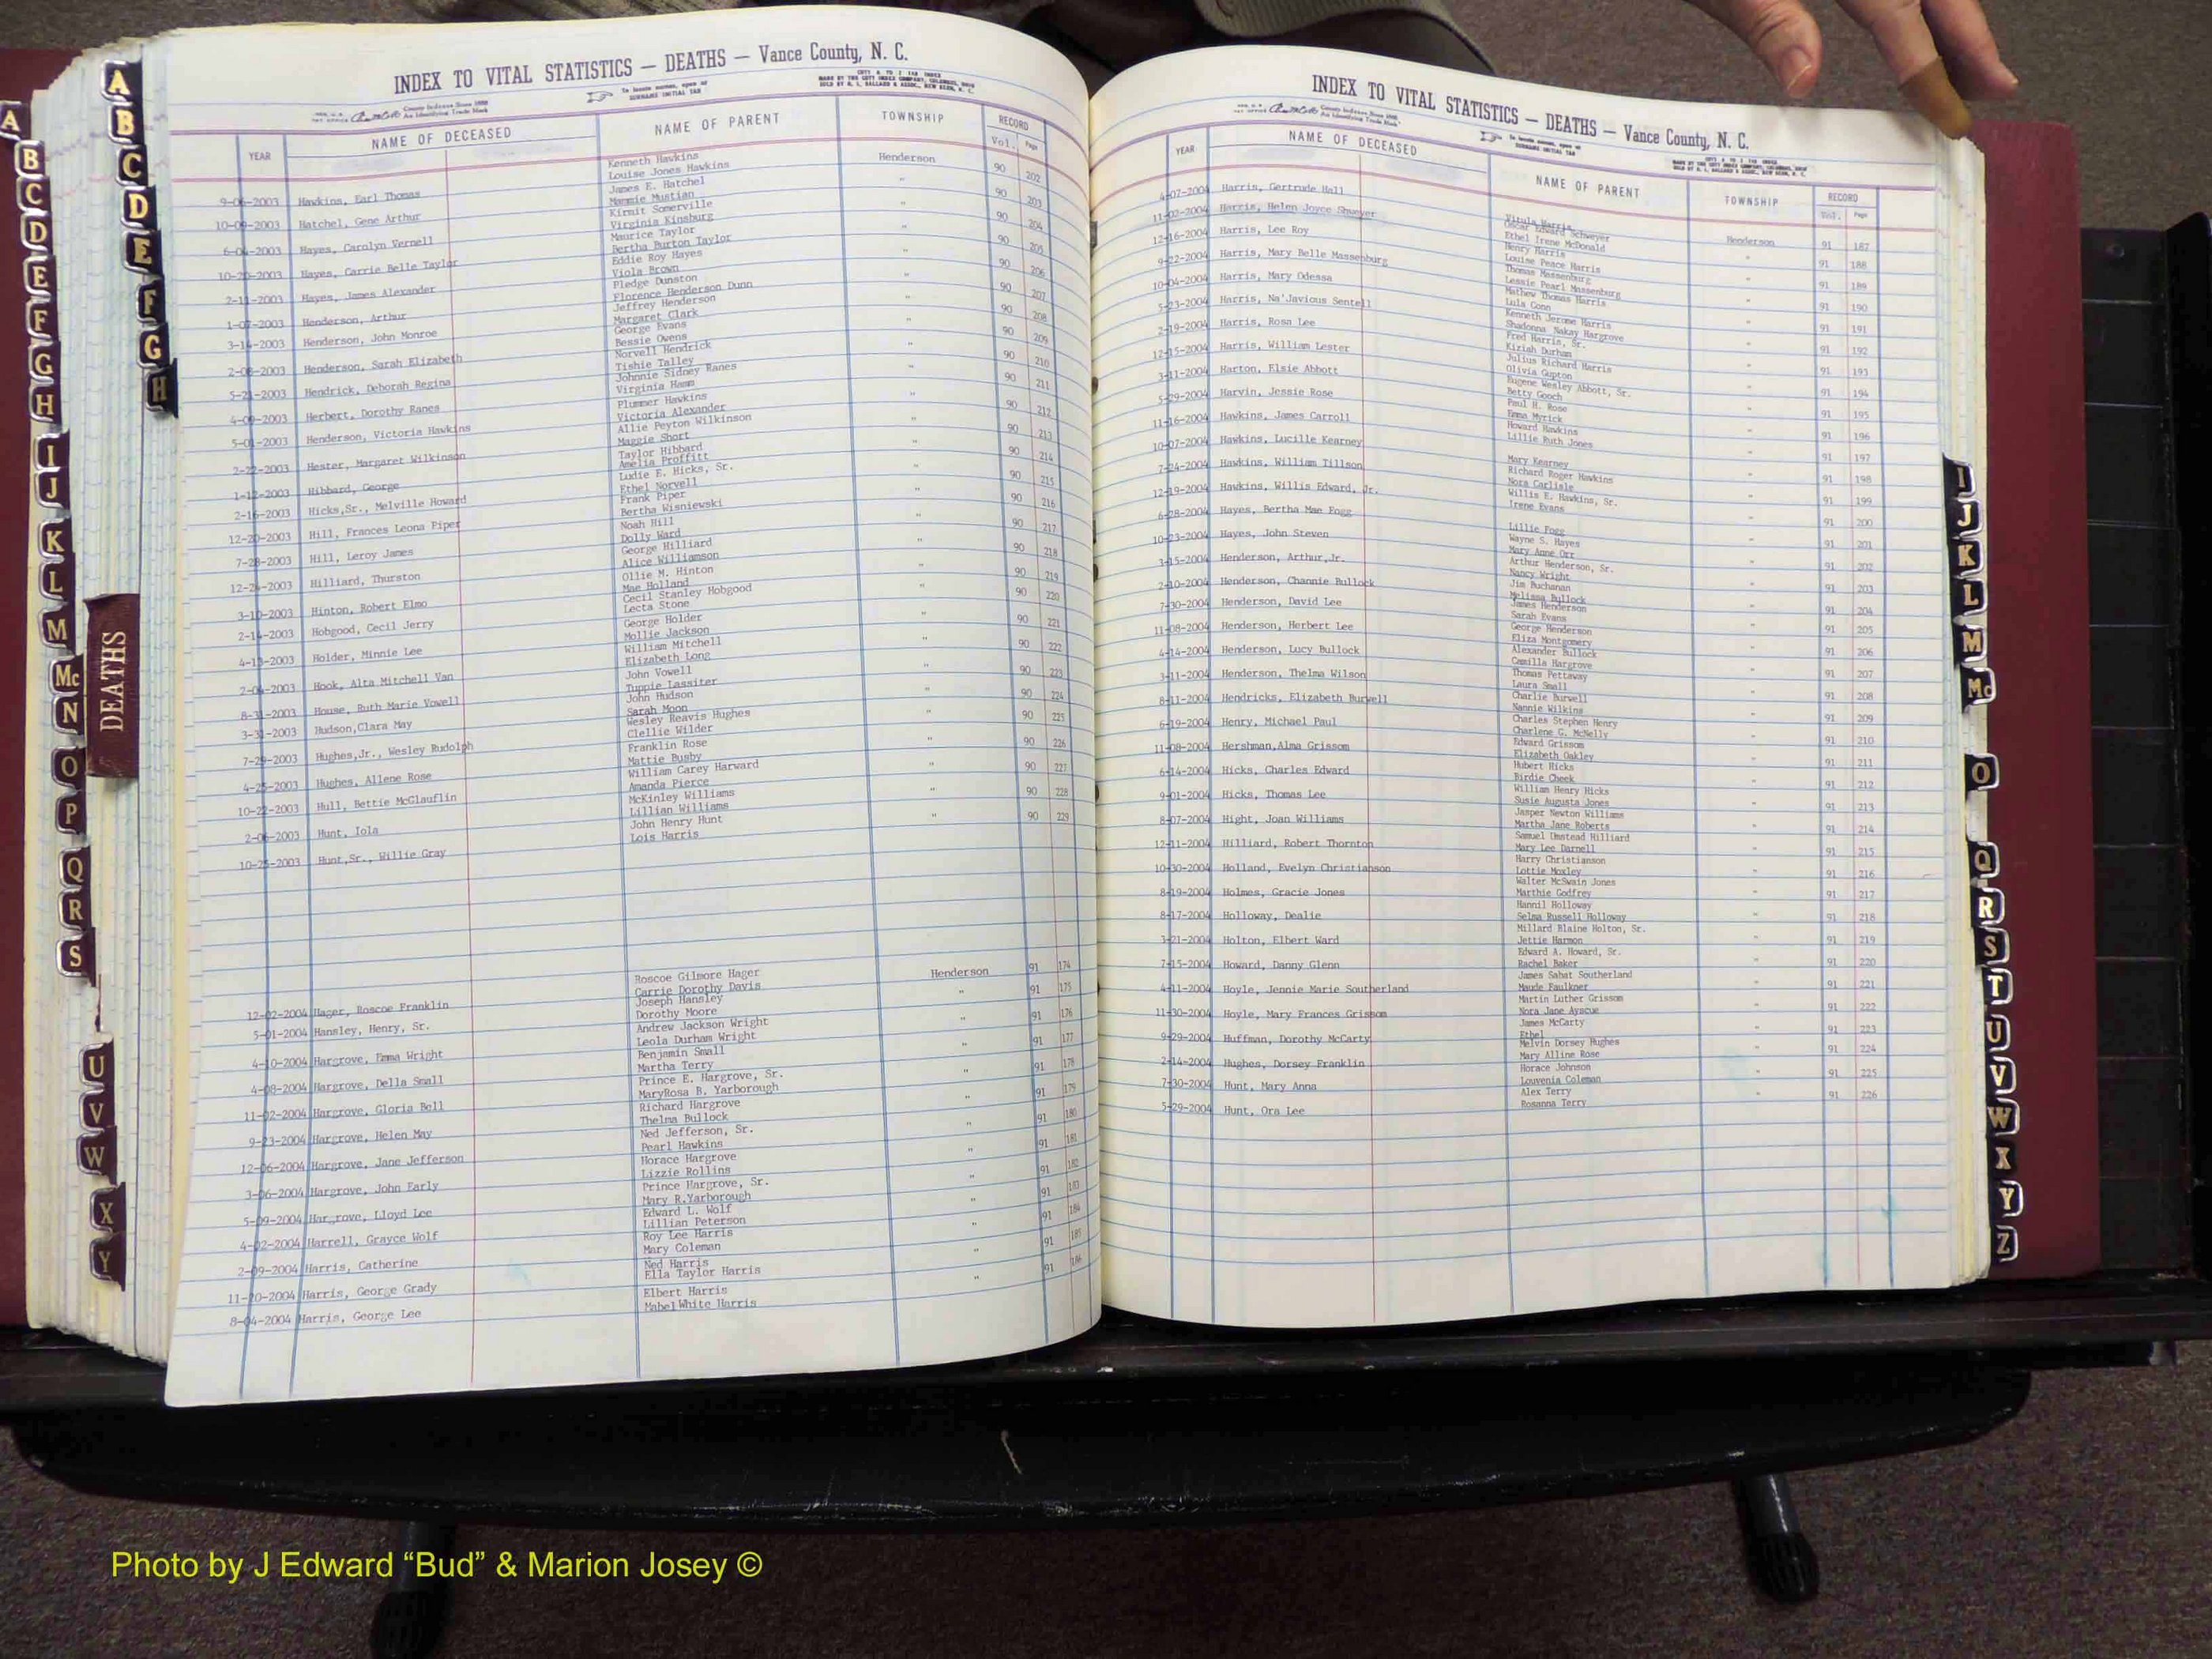 INDEX TO VITAL STATISTICS — DEATHS — Vance County, N. C.
County Indexes Since 1888
An Identifying Trade Mark
To locate names, open at
SURNAME INITIAL TAB
COTT A TO Z TAB INDEX
MADE BY THE COTT INDEX COMPANY, COLUMBUS, OHIO
SOLD BY O. L. BALLARD & ASSOC., NEW BERN, N. C.
YEAR NAME OF DECEASED NAME OF PARENT TOWNSHIP RECORD
Vol. Page
Kenneth Hawkins
9-06-2003 Hawkins, Earl Thomas Louise Jones Hawkins Henderson 90 202
James E. Hatchel
10-09-2003 Hatchel, Gene Arthur Mammie Mustian " 90 203
Kirmit Somerville
6-04-2003 Hayes, Carolyn Vernell Virginia Kinsburg " 90 204
Maurice Taylor
10-20-2003 Hayes, Carrie Belle Taylor Bertha Burton Taylor " 90 205
Eddie Roy Hayes
2-11-2003 Hayes, James Alexander Viola Brown " 90 206
Pledge Dunston
1-07-2003 Henderson, Arthur Florence Henderson Dunn " 90 207
Jeffrey Henderson
3-14-2003 Henderson, John Monroe Margaret Clark " 90 208
George Evans
2-08-2003 Henderson, Sarah Elizabeth Bessie Owens " 90 209
Norvell Hendrick
5-21-2003 Hendrick, Deborah Regina Tishie Talley " 90 210
Johnnie Sidney Ranes
4-09-2003 Herbert, Dorothy Ranes Virginia Hamm " 90 211
Plummer Hawkins
5-01-2003 Henderson, Victoria Hawkins Victoria Alexander " 90 212
Allie Peyton Wilkinson
2-22-2003 Hester, Margaret Wilkinson Maggie Short " 90 213
Taylor Hibbard
1-12-2003 Hibbard, George Amelia Proffitt " 90 214
Ludie E. Hicks, Sr.
2-16-2003 Hicks,Sr., Melville Howard Ethel Norvell " 90 215
Frank Piper
12-20-2003 Hill, Frances Leona Piper Bertha Wisniewski " 90 216
Noah Hill
7-28-2003 Hill, Leroy James Dolly Ward " 90 217
George Hilliard
12-24-2003 Hilliard, Thurston Alice Williamson " 90 218
Ollie M. Hinton
3-10-2003 Hinton, Robert Elmo Mae Holland " 90 219
Cecil Stanley Hobgood
2-14-2003 Hobgood, Cecil Jerry Lecta Stone " 90 220
George Holder
4-13-2003 Holder, Minnie Lee Mollie Jackson " 90 221
William Mitchell
2-04-2003 Hook, Alta Mitchell Van Elizabeth Long " 90 222
John Vowell
8-31-2003 House, Ruth Marie Vowell Tuppie Lassiter " 90 223
John Hudson
3-31-2003 Hudson,Clara May Sarah Moon " 90 224
Wesley Reavis Hughes
7-29-2003 Hughes,Jr., Wesley Rudolph Clellie Wilder " 90 225
Franklin Rose
4-25-2003 Hughes, Allene Rose Mattie Busby " 90 226
William Carey Harward
10-22-2003 Hull, Bettie McGlauflin Amanda Pierce " 90 227
McKinley Williams
2-06-2003 Hunt, Iola Lillian Williams " 90 228
John Henry Hunt
10-25-2003 Hunt,Sr., Willie Gray Lois Harris " 90 229
Roscoe Gilmore Hager
12-02-2004 Hager, Roscoe Franklin Carrie Dorothy Davis Henderson 91 174
Joseph Hansley
5-01-2004 Hansley, Henry, Sr. Dorothy Moore " 91 175
Andrew Jackson Wright
4-10-2004 Hargrove, Emma Wright Leola Durham Wright " 91 176
Benjamin Small
4-08-2004 Hargrove, Della Small Martha Terry " 91 177
Prince E. Hargrove, Sr.
11-02-2004 Hargrove, Gloria Bell MaryRosa B. Yarborough " 91 178
Richard Hargrove
9-23-2004 Hargrove, Helen May Thelma Bullock " 91 179
Ned Jefferson, Sr.
12-06-2004 Hargrove, Jane Jefferson Pearl Hawkins " 91 180
Horace Hargrove
3-06-2004 Hargrove, John Early Lizzie Rollins " 91 181
Prince Hargrove, Sr.
5-09-2004 Hargrove, Lloyd Lee Mary R.Yarborough " 91 182
Edward L. Wolf
4-02-2004 Harrell, Grayce Wolf Lillian Peterson " 91 183
Roy Lee Harris
2-09-2004 Harris, Catherine Mary Coleman " 91 184
Ned Harris
11-20-2004 Harris, George Grady Ella Taylor Harris " 91 185
Elbert Harris
8-04-2004 Harris, George Lee Mabel White Harris " 91 186
INDEX TO VITAL STATISTICS — DEATHS — Vance County, N. C.
County Indexes Since 1888
An Identifying Trade Mark
To locate names, open at
SURNAME INITIAL TAB
COTT A TO Z TAB INDEX
MADE BY THE COTT INDEX COMPANY, COLUMBUS, OHIO
SOLD BY O. L. BALLARD & ASSOC., NEW BERN, N. C.
YEAR NAME OF DECEASED NAME OF PARENT TOWNSHIP RECORD
Vol. Page
4-07-2004 Harris, Gertrude Hall Vitula Harris Henderson 91 187
Oscar Edward Schweyer
11-02-2004 Harris, Helen Joyce Shweyer Ethel Irene McDonald " 91 188
Henry Harris
12-16-2004 Harris, Lee Roy Louise Peace Harris " 91 189
Thomas Massenburg
9-22-2004 Harris, Mary Belle Massenburg Lessie Pearl Massenburg " 91 190
Mathew Thomas Harris
10-04-2004 Harris, Mary Odessa Lula Conn " 91 191
Kenneth Jerome Harris
5-23-2004 Harris, Na'Javious Sentell Shadonna Nakay Hargrove " 91 192
Fred Harris, Sr.
2-19-2004 Harris, Rosa Lee Kiziah Durham " 91 193
Julius Richard Harris
12-15-2004 Harris, William Lester Olivia Gupton " 91 194
Eugene Wesley Abbott, Sr.
3-11-2004 Harton, Elsie Abbott Betty Gooch " 91 195
Paul H. Rose
5-29-2004 Harvin, Jessie Rose Emma Myrick " 91 196
Howard Hawkins
11-16-2004 Hawkins, James Carroll Lillie Ruth Jones " 91 197
10-07-2004 Hawkins, Lucille Kearney Mary Kearney " 91 198
Richard Roger Hawkins
7-24-2004 Hawkins, William Tillson Nora Carlisle " 91 199
Willis E. Hawkins, Sr.
12-19-2004 Hawkins, Willis Edward, Jr. Irene Evans " 91 200
6-28-2004 Hayes, Bertha Mae Fogg Lillie Fogg " 91 201
Wayne S. Hayes
10-23-2004 Hayes, John Steven Mary Anne Orr " 91 202
Arthur Henderson, Sr.
1-15-2004 Henderson, Arthur,Jr. Nancy Wright " 91 203
Jim Buchanan
2-10-2004 Henderson, Channie Bullock Melissa Bullock " 91 204
James Henderson
7-30-2004 Henderson, David Lee Sarah Evans " 91 205
George Henderson
11-08-2004 Henderson, Herbert Lee Eliza Montgomery " 91 206
Alexander Bullock
4-14-2004 Henderson, Lucy Bullock Camilla Hargrove " 91 207
Thomas Pettaway
3-11-2004 Henderson, Thelma Wilson Laura Small " 91 208
Charlie Burwell
8-11-2004 Hendricks, Elizabeth Burwell Nannie Wilkins " 91 209
Charles Stephen Henry
6-19-2004 Henry, Michael Paul Charlene G. McNelly " 91 210
Edward Grissom
11-08-2004 Hershman,Alma Grissom Elizabeth Oakley " 91 211
Hubert Hicks
6-14-2004 Hicks, Charles Edward Birdie Cheek " 91 212
William Henry Hicks
9-01-2004 Hicks, Thomas Lee Susie Augusta Jones " 91 213
Jasper Newton Williams
8-07-2004 Hight, Joan Williams Martha Jane Roberts " 91 214
Samuel Umstead Hilliard
12-11-2004 Hilliard, Robert Thornton Mary Lee Darnell " 91 215
Harry Christianson
10-30-2004 Holland, Evelyn Christianson Lottie Moxley " 91 216
Walter McSwain Jones
8-19-2004 Holmes, Gracie Jones Marthie Godfrey " 91 217
Hannil Holloway
8-17-2004 Holloway, Dealie Selma Russell Holloway " 91 218
Millard Blaine Holton, Sr.
3-21-2004 Holton, Elbert Ward Jettie Harmon " 91 219
Edward A. Howard, Sr.
7-15-2004 Howard, Danny Glenn Rachel Baker " 91 220
James Sabat Southerland
4-11-2004 Hoyle, Jennie Marie Southerland Maude Faulkner " 91 221
Martin Luther Grissom
11-30-2004 Hoyle, Mary Frances Grissom Nora Jane Ayscue " 91 222
James McCarty
9-29-2004 Huffman, Dorothy McCarty Ethel " 91 223
Melvin Dorsey Hughes
2-14-2004 Hughes, Dorsey Franklin Mary Alline Rose " 91 224
Horace Johnson
7-30-2004 Hunt, Mary Anna Louvenia Coleman " 91 225
Alex Terry
5-29-2004 Hunt, Ora Lee Rosanna Terry " 91 226
A
B
C
D
E
F
G
H
I
J
K
L
M
Mc
N
O
P
Q
R
S
U
V
W
X
Y
A
B
C
D
E
F
G
H
DEATHS
I
J
K
L
M
Mc
O
Q
R
S
T
U
V
W
X
Y
Z
Photo by J Edward “Bud” & Marion Josey ©